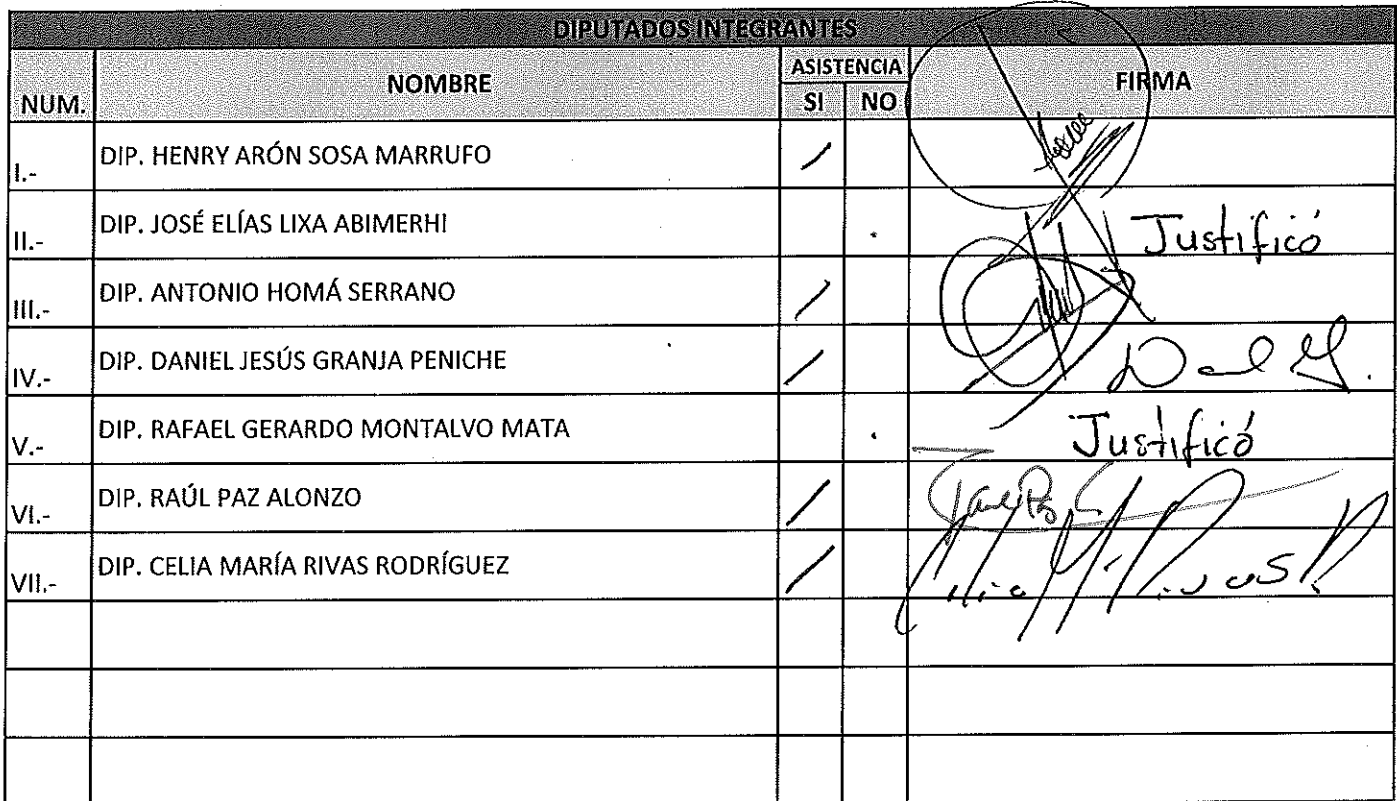 DIPUTADOS INTEGRANTES
NUM. NOMBRE ASISTENCIA FIRMA
SI NO
I.- DIP. HENRY ARÓN SOSA MARRUFO /
II.- DIP. JOSÉ ELÍAS LIXA ABIMERHI . Justificó
III.- DIP. ANTONIO HOMÁ SERRANO /
IV.- DIP. DANIEL JESÚS GRANJA PENICHE /
V.- DIP. RAFAEL GERARDO MONTALVO MATA . Justificó
VI.- DIP. RAÚL PAZ ALONZO /
VII.- DIP. CELIA MARÍA RIVAS RODRÍGUEZ /